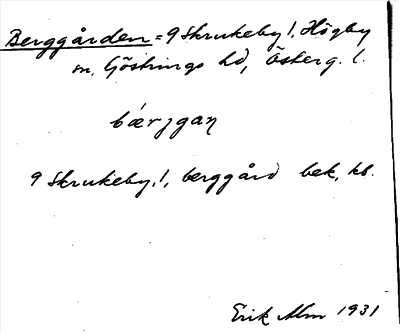 Berggården = 9 Skrukeby!, Högby
sn, Göstrings hd, Österg. l.
bǽrjgaɳ
9 Skrukeby, !, berggård bek, hb.
Erik Alm 1931